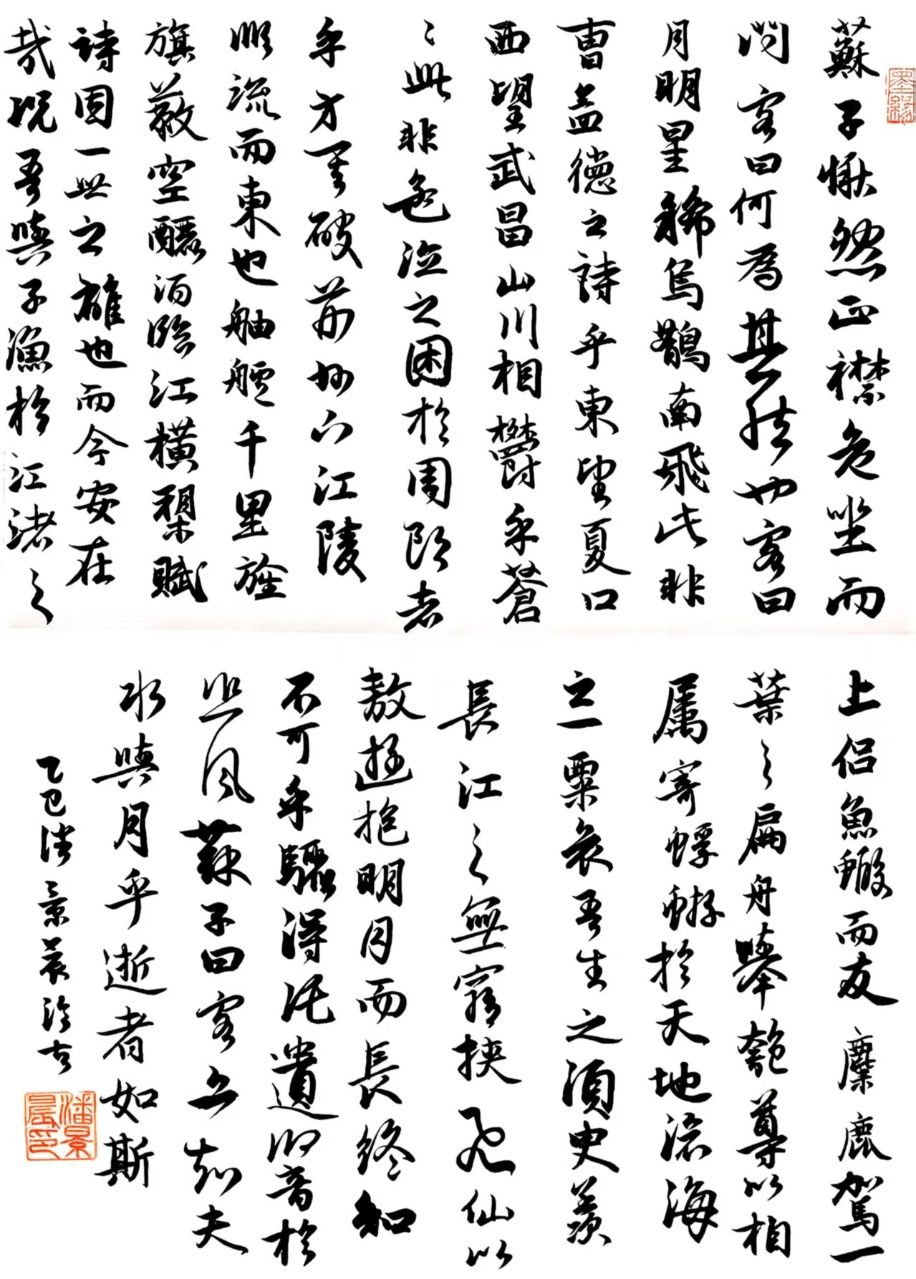 墨緣
蘇子愀然正襟危坐而
問客曰何為其然也客曰
月明星稀烏鵲南飛此非
曹孟德之詩乎東望夏口
西望武昌山川相欝乎蒼
々此非孟德之困於周郎者
乎方其破荊州下江陵
順流而東也舳艫千里旌
旗蔽空釃酒臨江橫槊賦
詩固一世之雄也而今安在
哉況吾與子漁於江渚之
上侶魚鰕而友麋鹿駕一
葉之扁舟舉匏尊以相
屬寄蜉蝣於天地滄海
之一粟哀吾生之須臾羨
長江之無窮挾飛仙以
敖遊抱明月而長終知
不可乎驟得託遺響於
悲風蘇子曰客亦知夫
水與月乎逝者如斯
乙巳潘景晨
潘景晨印